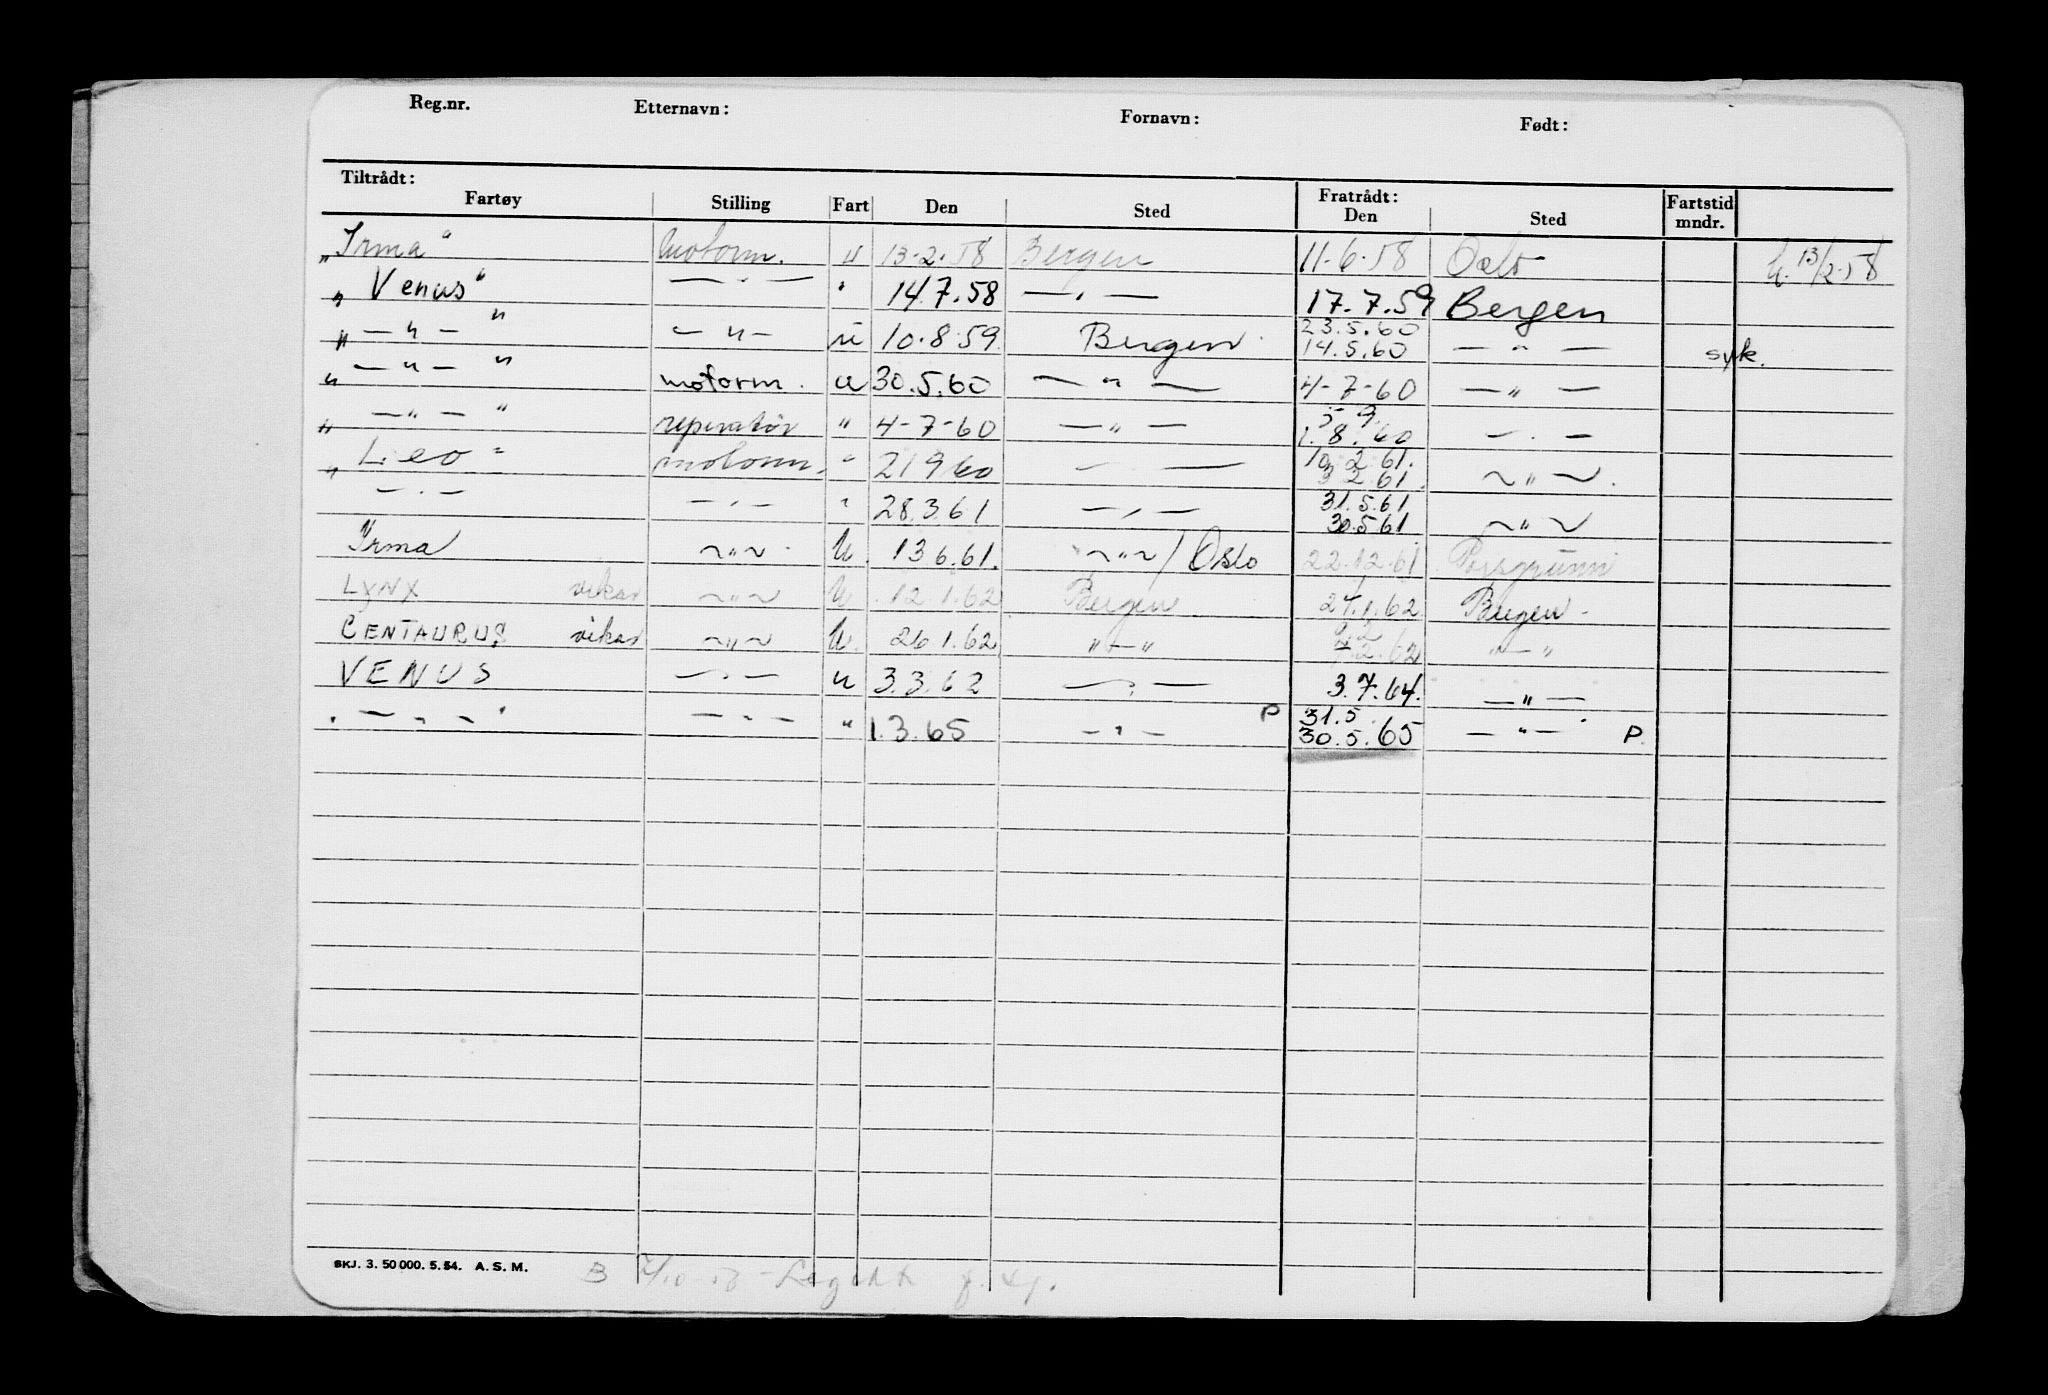 Reg.nr. Etternavn: Fornavn: Født:
Tiltrådt: Fratrådt: Fartstid
Fartøy Stilling Fart Den Sted Den Sted mndr.
„Irma“ Motorm. u 13.2.58 Bergen 11.6.58 Oslo 13/2.58
„Venus“ — " — " 14.7.58 — " — 17.7.59 Bergen
„ — " — “ — " — u 10.8.59 Bergen 23.5.60
14.5.60 — " — syk.
„ — " — “ motorm. u 30.5.60 — " — 4-7-60 — " —
„ — " — “ reparatør " 4-7-60 — " — 1.8.60 — " —
„Leo“ motorm. " 21 9 60 — " — 10 2 61.
3 2 61. ~ " ~.
— " — — " — " 28.3.61 — " — 31.5.61
30.5.61 ~ " ~
Irma ~ " ~ U. 13 6.61. ~ " ~ / Oslo 22.12.61 Porsgrunn
LYNX vikar ~ " ~ U .12.1.62 Bergen 24.1.62 Bergen.
CENTAURUS vikar ~ " ~ U. 26 1.62 " — " 7.2.62 " — "
VENUS — " — u 3.3.62 — " — 3.7.64. — " —
" — " — " — " — " 1.3.65 — " — P 31.5
30.5.65 — " — P.
SKJ. 3. 50 000. 5. 54. A. S. M. B